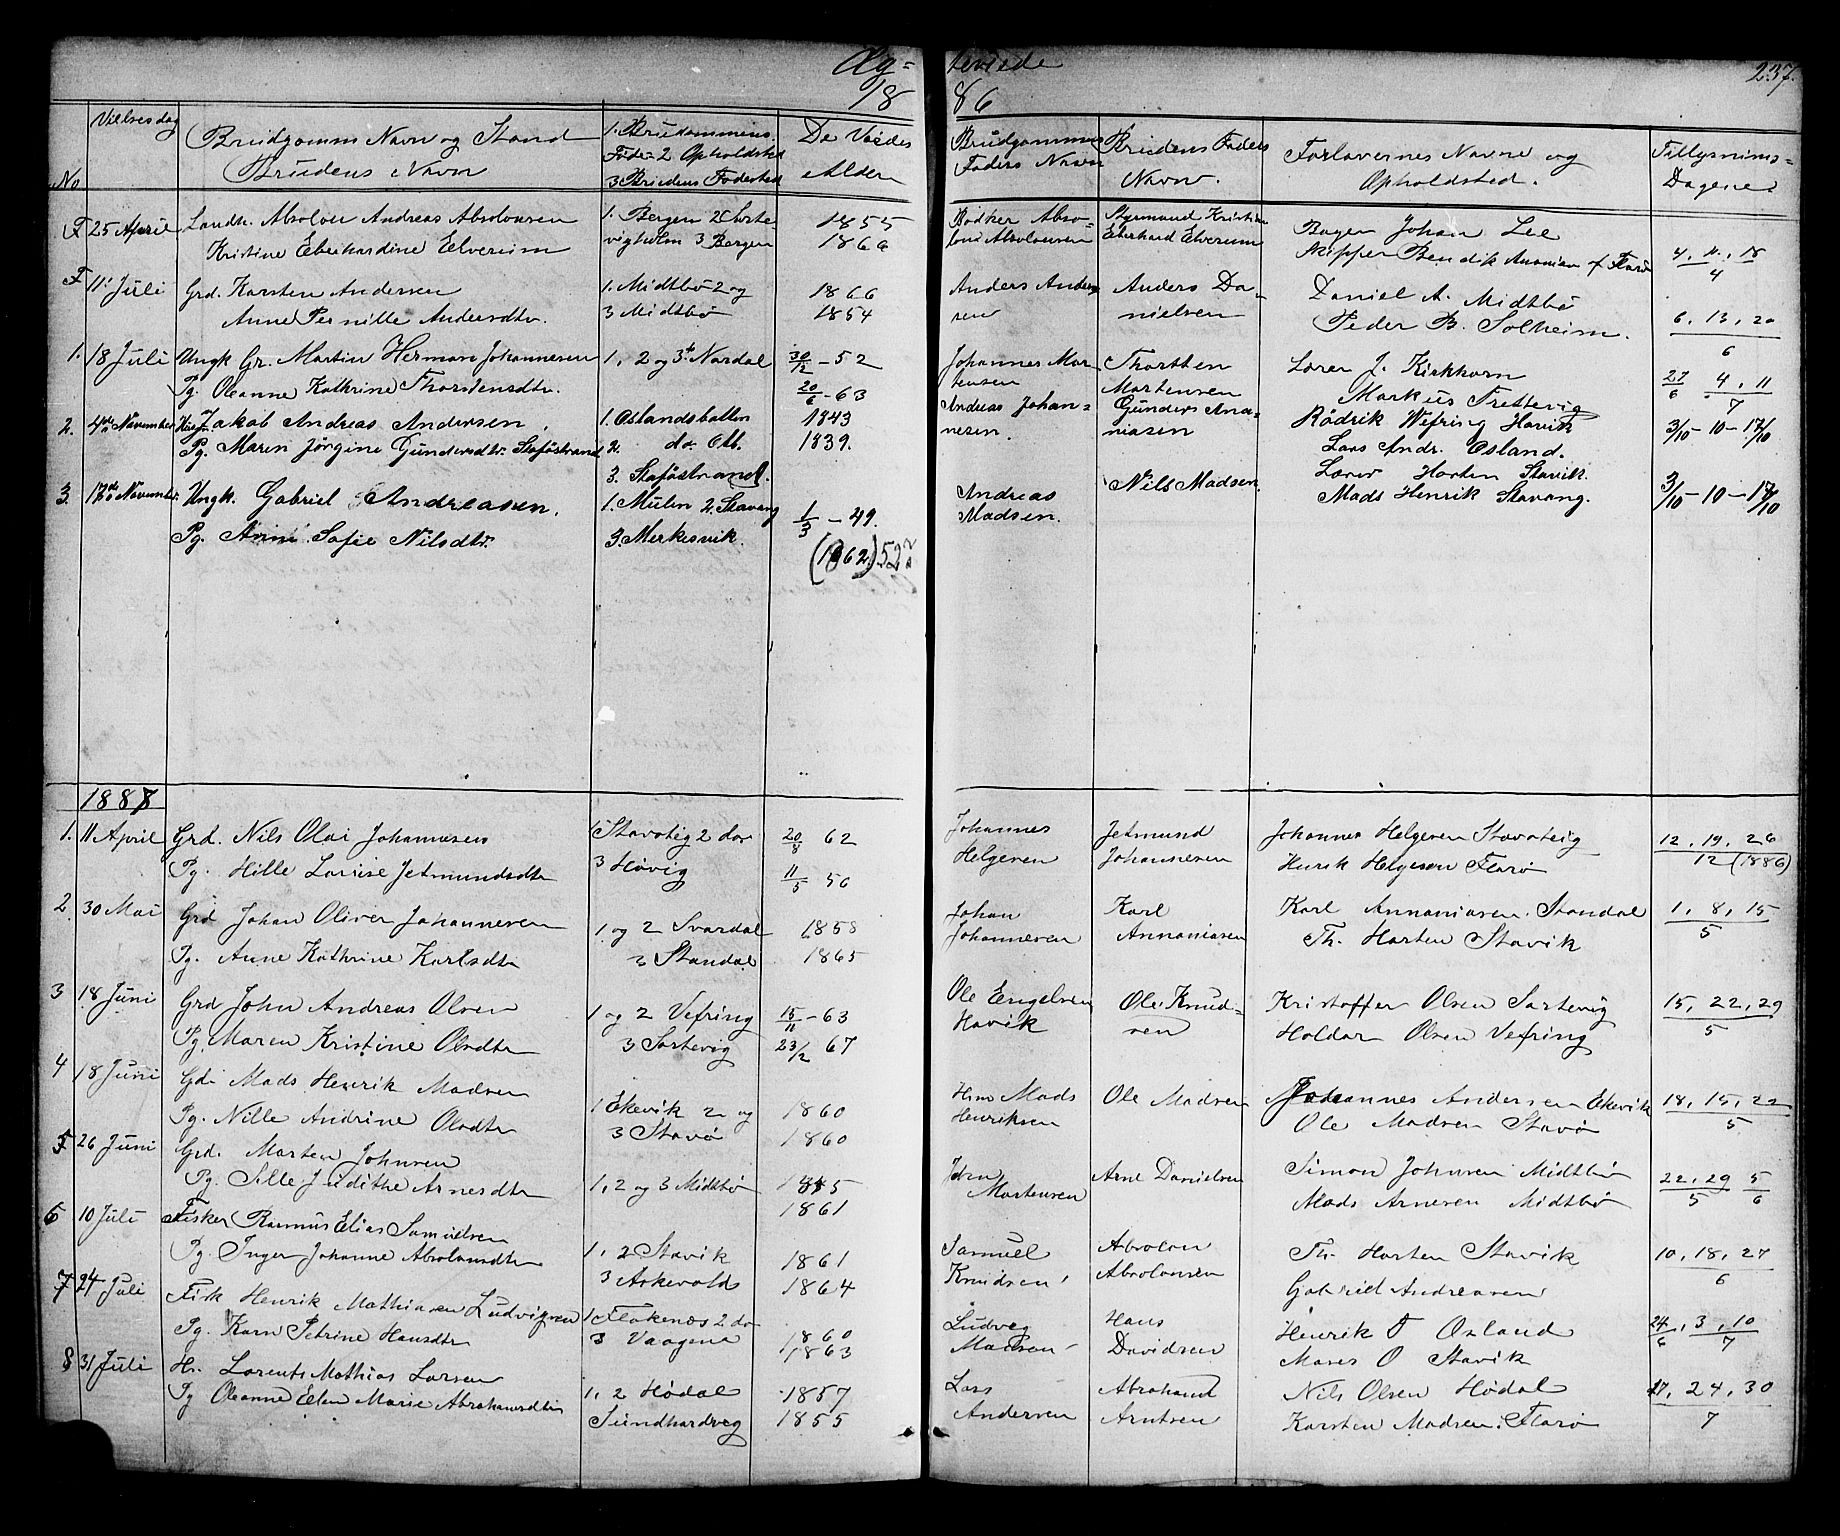 Æg= teviede 237.
18 86
No
Vielsesdag
Brudgomms Navn og Stand
Brudens Navn
1. Brudommens
Føde- 2 Opholdsted
3 Brudens Fødested
De Viedes
Alder
Brudgommes
Faders Navn
Brudens Faders
Navn.
Forlovernes Navne og
Opholdsted.
Tillysnings=
Dagene.
F 25 April Landh. Absolon Andreas Absolonsen
Kristine Eberhardine Elverum
1. Bergen 2
vigholm 3 Bergen
1855
1866
Bødker Abso-
lon Absolonsen
Styrmand Kristian
Eberhard Elverum
Bager Johan Lee
Skipper Bendik Ananiasen af Florø
4, 11, 18
4
F 11' Juli Grd. Karsten Andersen
Anne Pernille Andersdtr.
1. Midtbø 2 og
3 Midtbø
1866
1854
Anders Ander
sen
Anders Da-
nielsen
Daniel A. Midtbø
Peder B. Solheim.
6, 13, 20
6
1. 18 Juli Ungk Gr. Martin Herman Johannesen
Pg. Oleanne Kathrine Thorstensdtr.
1, 2 og 3 Nordal
30/12 - 52
20/6 - 63
Johannes Mar-
tensen
Thorsten
Mortensen
Loren J. Kirkhorn
Markus Trettevig
27/6 . 4, 11/7
2. 4de November Jakob Andreas Andersen.
Pg. Maren Jörgine Gundersdtr. Staföstrand
1. Oslandsbotten
2. do Ott.
3. Staföstrand.
1843
1839.
Andreas Johan=
nesen.
Gunders Ana=
niasen
Rödrik Vefring Havik
Lars Andr. Osland.
3/10 - 10 - 17/10
3. 17de November. Ungk. Gabriel Andreasen.
Pg. Anne Sofie Nilsdtr.
1. Mulen 2. Stavang
3. Merkesvik.
1/3 - 49.
(1862) 52
Andreas
Madsen.
Nils Madsen.
Lærer Horten Stavik.
Mads Henrik Stavang.
3/10 - 10 - 17/10
1887
1. 11 April Grd. Nils Olai Johannesen
Pg. Hille Lovise Jetmundsdtr
1 Stavøteig 2 do
3 Høvig
20/8 62
11/5 56
Johannes
Helgesen
Jetmund
Johannesen
Johannes Helgesen Stavøteig
Henrik Helgeson Florø
12, 19, 26
12 (1886)
2 30 Mai Grd Johan Oliver Johannesen
Pg. Anne Kathrine Karlsdtr
1 og 2 Svardal
3 Standal
1858
1865
Johan
Johannesen
Karl
Annaniasen
Karl Annaniasen. Standal
Th. Horten Stavik
1, 8, 15
5
3 18 Juni Grd John Andreas Olsen
Pg. Maren Kristine Olsdtr
1 og 2 Vefring
3 Sortevig
15/11 - 63
23/2 67
Ole Engelsen
Havik
Ole Knud=
sen
Kristoffer Olsen Sortevig
Holdar Olsen Vefring
15, 22, 29
5
4 18 Juni Gdr Mads Henrik Madsen
Pg. Nille Andrine Olsdtr
1 Ekevik 2 og
3 Stavø
1860
1860
Hsm Mads
Henriksen
Ole Madsen
Johannes Andersen Ekevik
Ole Madsen Stavø
18, 15, 22
5
5 26 Juni Grd. Morten Johnsen
Pg. Sille Judithe Arnesdtr
1, 2 og 3 Midtbø
1855
1861
John
Mortensen
Arne Danielsen
Simon Johnsen Midtbø
Mads Arnesen Midtbø
22, 29/5 5/6
6 10 Juli Fisker Rasmus Elias Samuelsen
Pg. Inger Johanne Absolonsdtr
1, 2 Stavik
3 Askevolds
1861
1864
Samuel
Knudsen
Absolon
Absolonsen
Th. Horten Stavik
Gabriel Andreasen
10, 18, 27
6
7 24 Juli Fisk Henrik Mathiasen Ludvigsen
Pg. Karn Petrine Hansdtr
1 Flokenæs 2 do
3 Vaagene
1860
1863
Ludveg
Madsen
Hans
Davidsen
Henrik O Osland
Moses O Stavik
24/6, 3, 10/7
8 31 Juli Hr. Lorents Mathias Larsen
Pg Oleanne Elen Marie Abrahamsdtr
1, 2 Hødal
Sundhardveg
1857
1855
Lars
Andersen
Abraham
Arntsen
Nils Olsen Hødal
Karsten Madsen. Florø
17, 24, 30
7